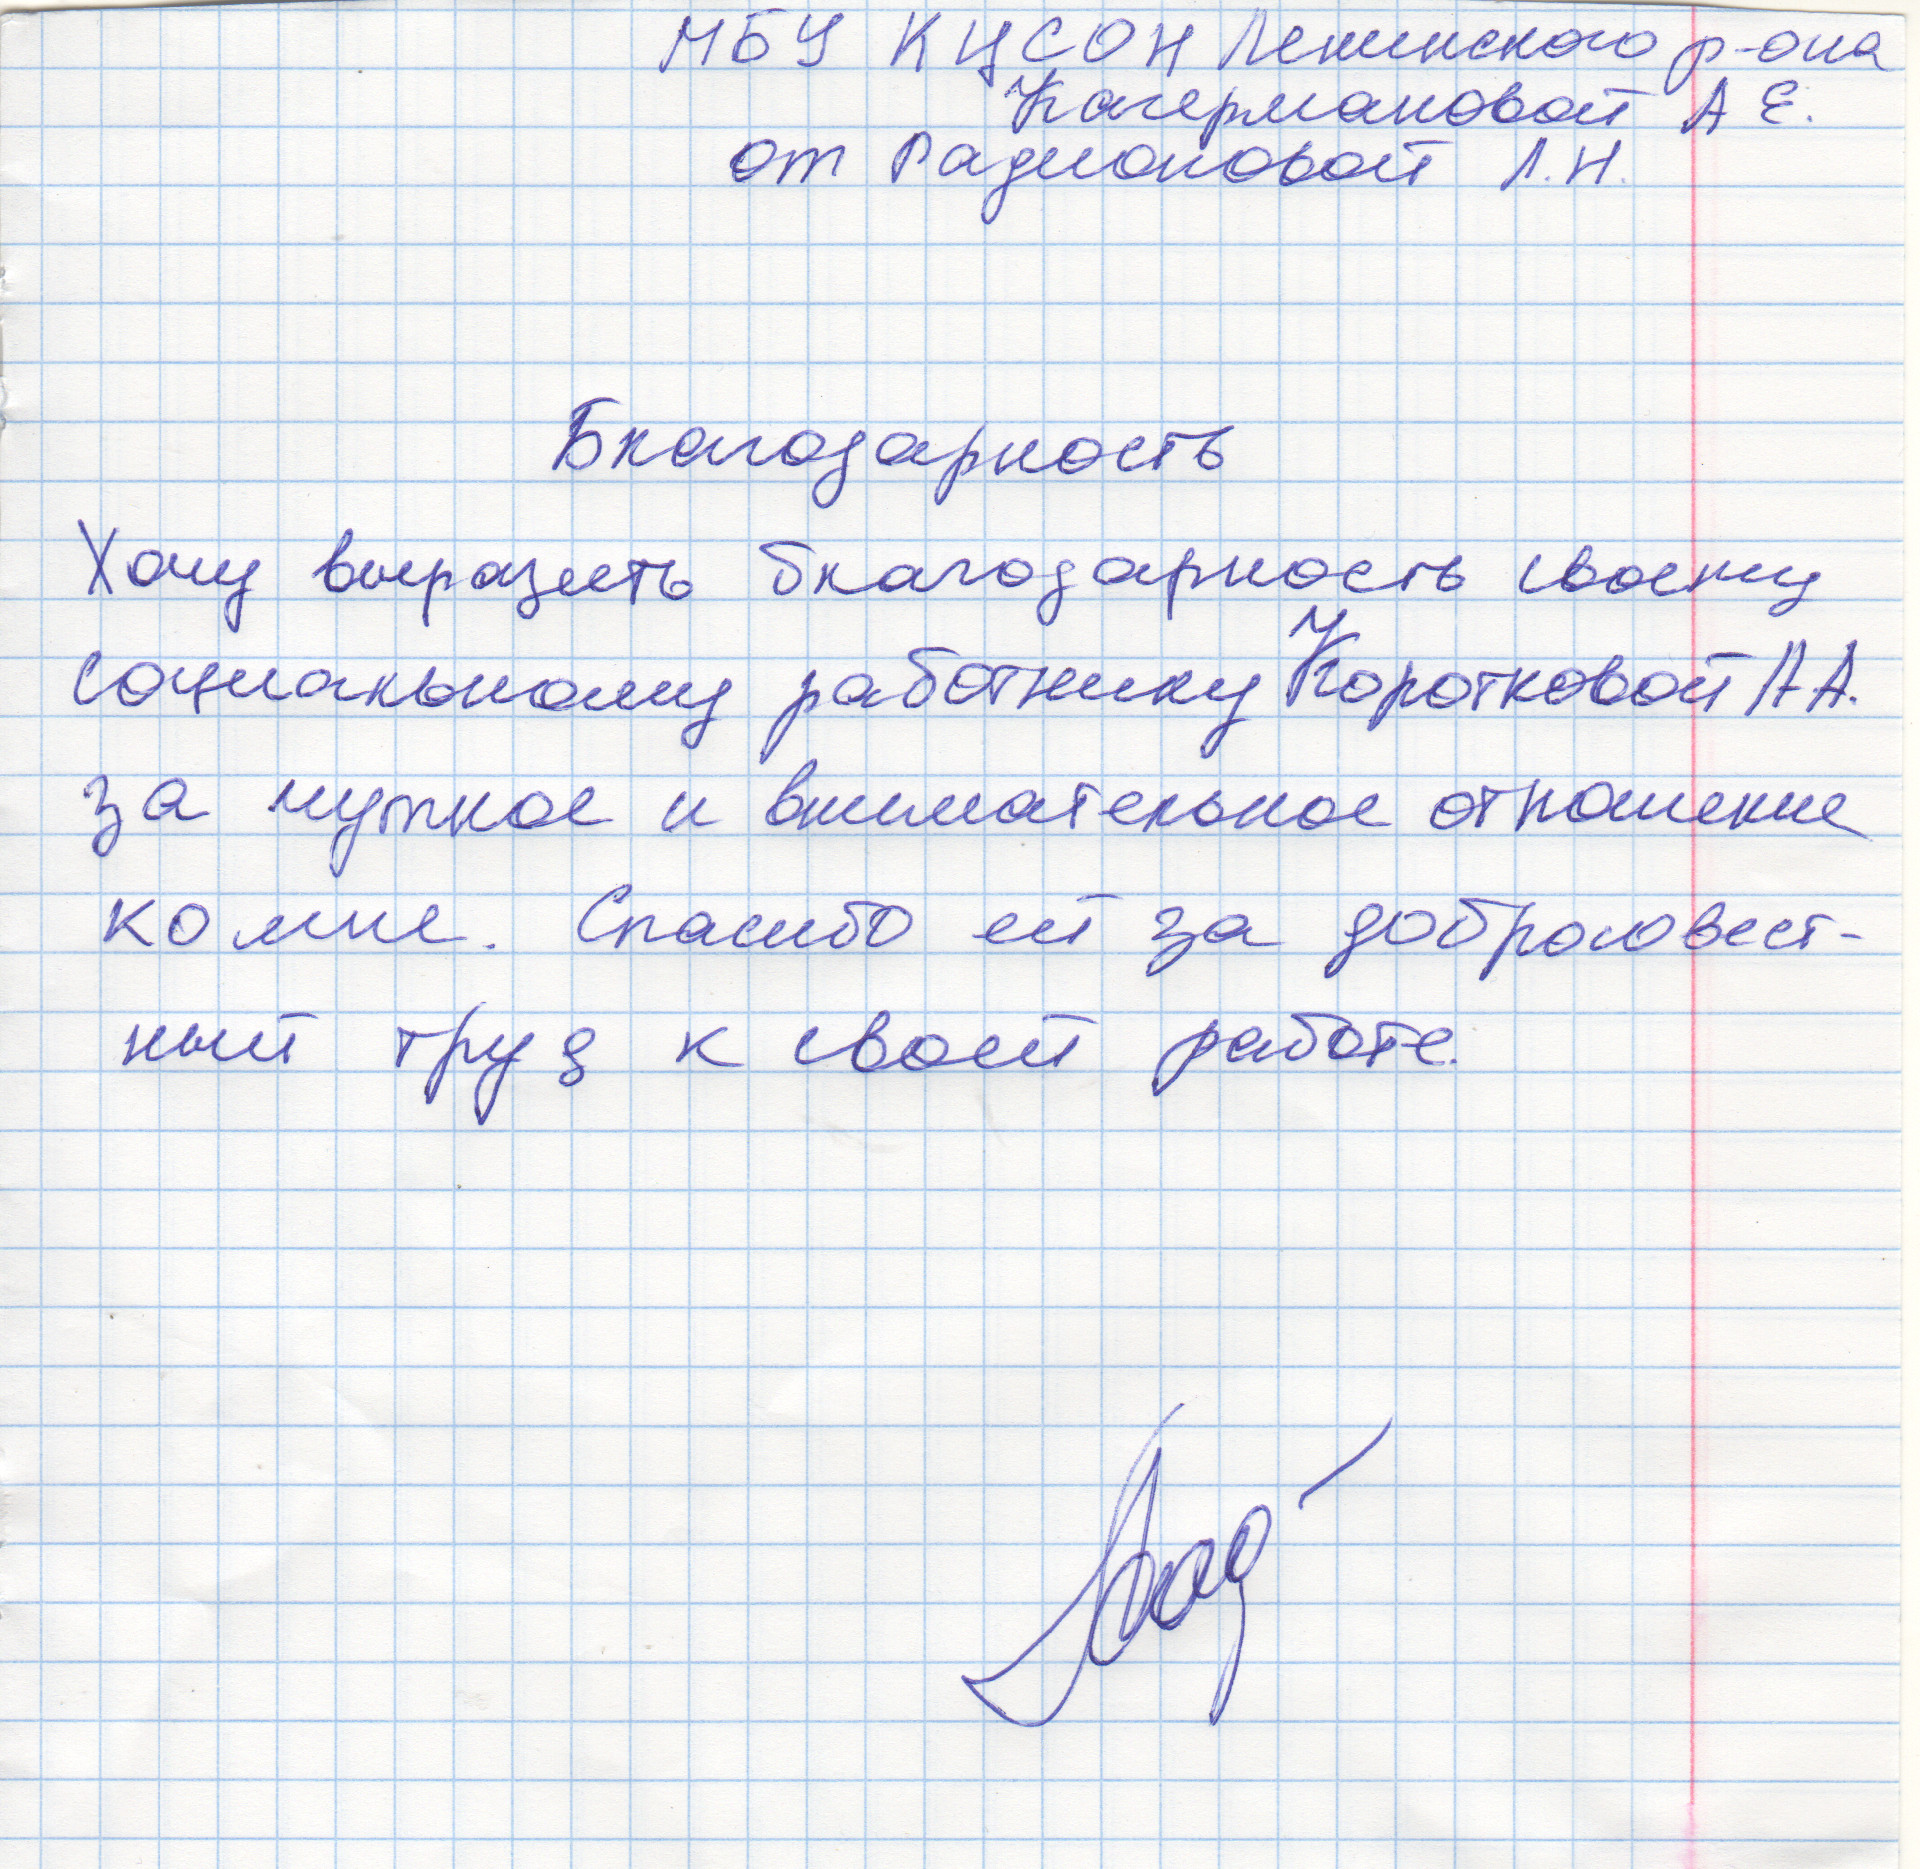 МБУ КЦСОН Ленинского р-она
Кагермановой А Е.
от Радионовой Л.Н.
Благодарность
Хочу выразить благодарность своему
социальному работнику Коротковой Л А.
за чуткое и внимательное отношение
ко мне. Спасибо ей за добросовест-
ный труд к своей работе.